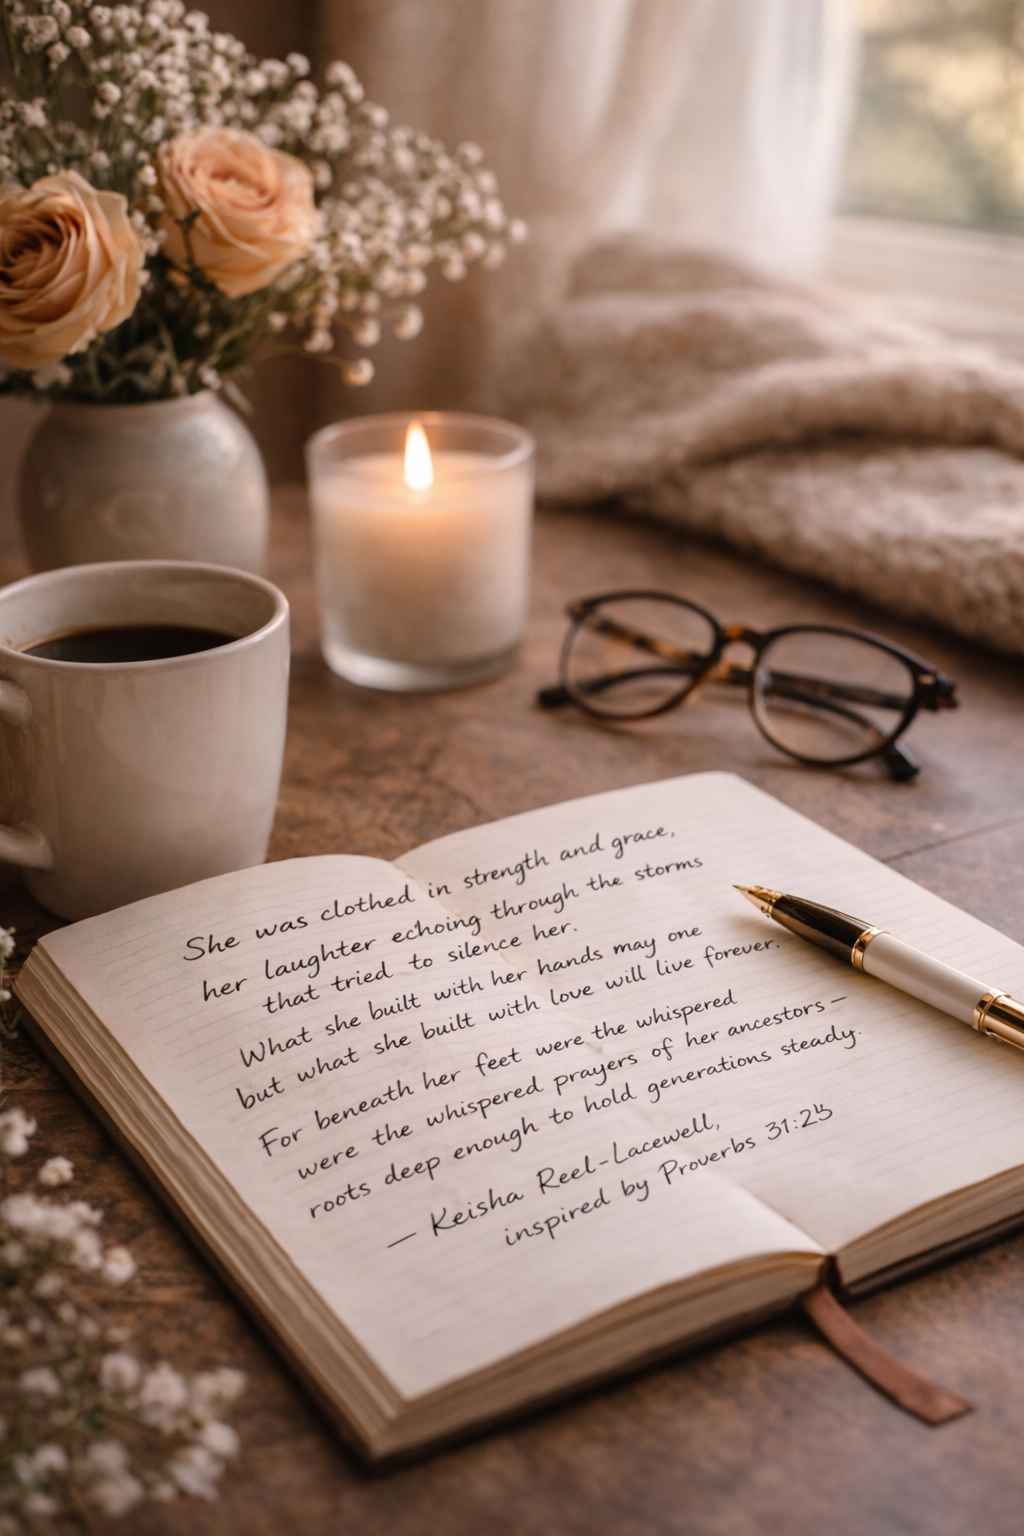 She was clothed in strength and grace,
her laughter echoing through the storms
that tried to silence her.
What she built with her hands may one
but what she built with love will live forever.
For beneath her feet were the whispered
were the whispered prayers of her ancestors —
roots deep enough to hold generations steady.
— Keisha Reel-Lacewell,
inspired by Proverbs